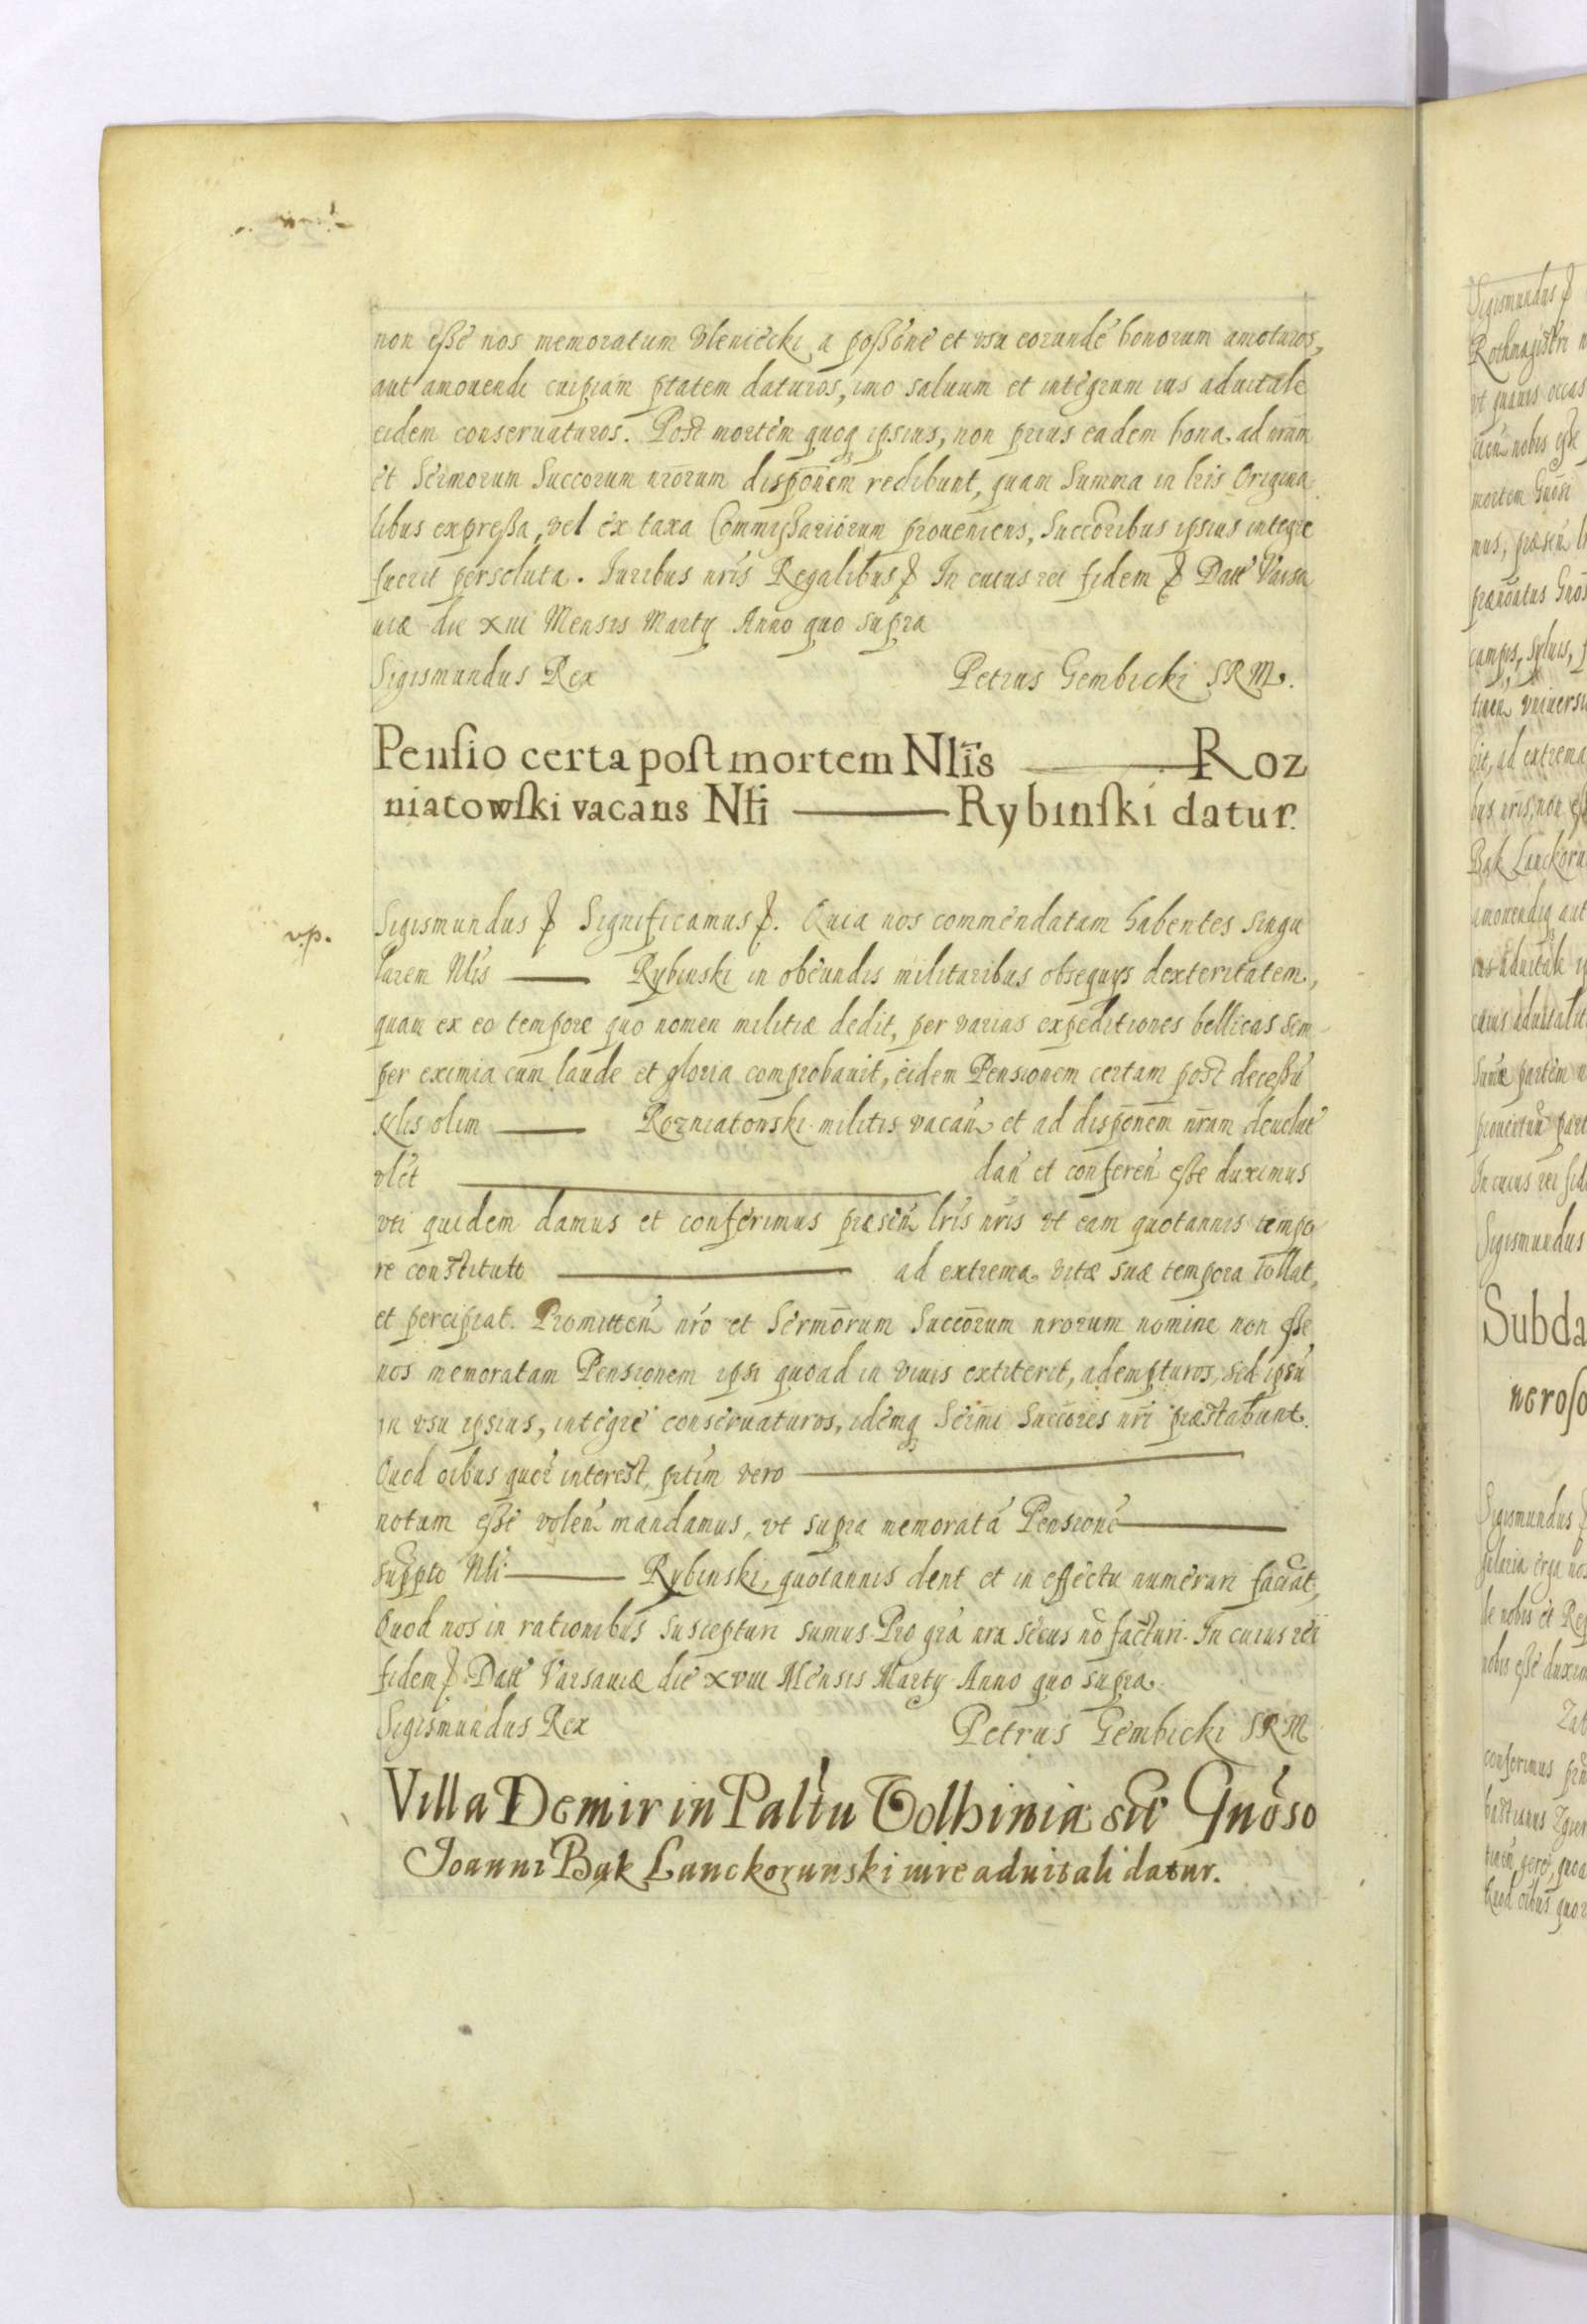 non esse nos memoratum Uleniecki a possēne et vsu eorundē bonorum amoturos,
aut amouendi cuipiam ptatem daturos, imo saluum et integrum ius aduitale
eidem conseruaturos. Post mortem quoq ipsius, non prius eadem bona ad nram
et Sermorum Succorum nrorum disponem redibunt, quam Summa in lris Origina
libus expressa, vel ex taxa Commissariorum proueniens, Succoribus ipsius integre
fuerit persoluta. Iuribus nris Regalibus In cuius rei fidem Datt Varsa
uiæ die XIII Mensis Marty Anno quo supra
Sigismundus Rex Petrus Gembicki SRM.
Pensio certa post mortem Nlis — Roz
niatowski vacans Nli — Rybinski datur.
v.p.
Sigismundus Significamus. Quia nos commendatam habentes singu
larem Nlis — Rybinski in obeundis militaribus obsequys dexteritatem,
quam ex eo tempore quo nomen militiæ dedit, per varias expeditiones bellicas sem
per eximia cum laude et gloria comprobauit, eidem Pensionem certam post decessū
olim — Rozniatonski militis vacan et ad disponem nram deuolut
vlet — dan et conferen esse duximus
vti quidem damus et conferimus præsen lris nris vt eam quotannis tempo
re constituto — ad extrema vitæ suæ tempora tollat,
et percipiat. Promitten nro et Sermorum Succorum nrorum nomine non esse
nos memoratam Pensionem ipsi quoad in viuis extiterit, adempturos, sed ipsū
in vsu ipsius, integre conseruaturos, idemq Sermi Succores nri præstabunt.
Quod oibus quor interest, ptim vero —
notum esse volen mandamus, vt supra memoratā Pensionē —
suppto Nli — Rybinski, quotannis dent et in effectu numerari faciāt,
Quod nos in rationibus suscepturi sumus. Pro gra nra secus nō facturi. In cuius rei
fidem Datt Varsauiæ die XVIII Mensis Marty Anno quo supra.
Sigismundus Rex Petrus Gembicki SRM
Villa Demir in Paltu Volhiniæ Gnoso
Joanni Bąk Lanckorunski iure aduitali datur.